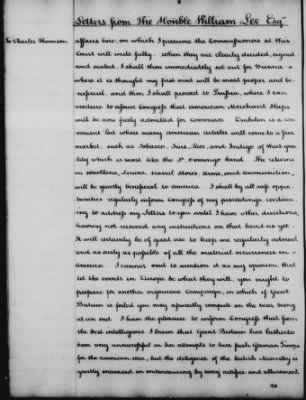 Letters from The Honble William Lee Esqr
To Charles Thomson
affairs here, on which I presume the Commissioners at this
Court will write fully - when they are clearly decided, signed
and sealed, I shall then immediately set out for Vienna -
where it is thought my first visit will be most proper and be-
neficial, and then I shall proceed to Prussia, where I can
venture to assure Congress that American Merchant Ships
will be now freely admitted for Commerce. Embden is a con-
venient Port where many American articles will come to a free
market, such as Tobacco, Furs, Rice, and Indigo of that qua-
lity which is most like the St Domingo kind. The returns
in Woollens, Linens, Naval Stores, Arms, and Ammunition,
will be greatly beneficial to America. I shall by all safe oppor-
tunities regularly inform Congress of my proceedings, continu-
ing to address my Letters to you until I have other directions,
having not received any instructions on that head as yet.
It will certainly be of great use to keep me regularly advised
and as early as possible of all the material occurrences in
America. I cannot omit to mention it as my opinion that
let the events in Europe be what they will, you ought to
prepare for another vigorous Campaign, in which if Great
Britain is foiled you may assuredly compute on the war being
at an end. I have the pleasure to inform Congress that from
the best intelligence I learn that Great Britain has hitherto
been very unsuccessful in her attempts to hire fresh German Troops
for the American war, but the diligence of the British Ministry is
greatly increased in endeavouring by every artifice and allurement
to